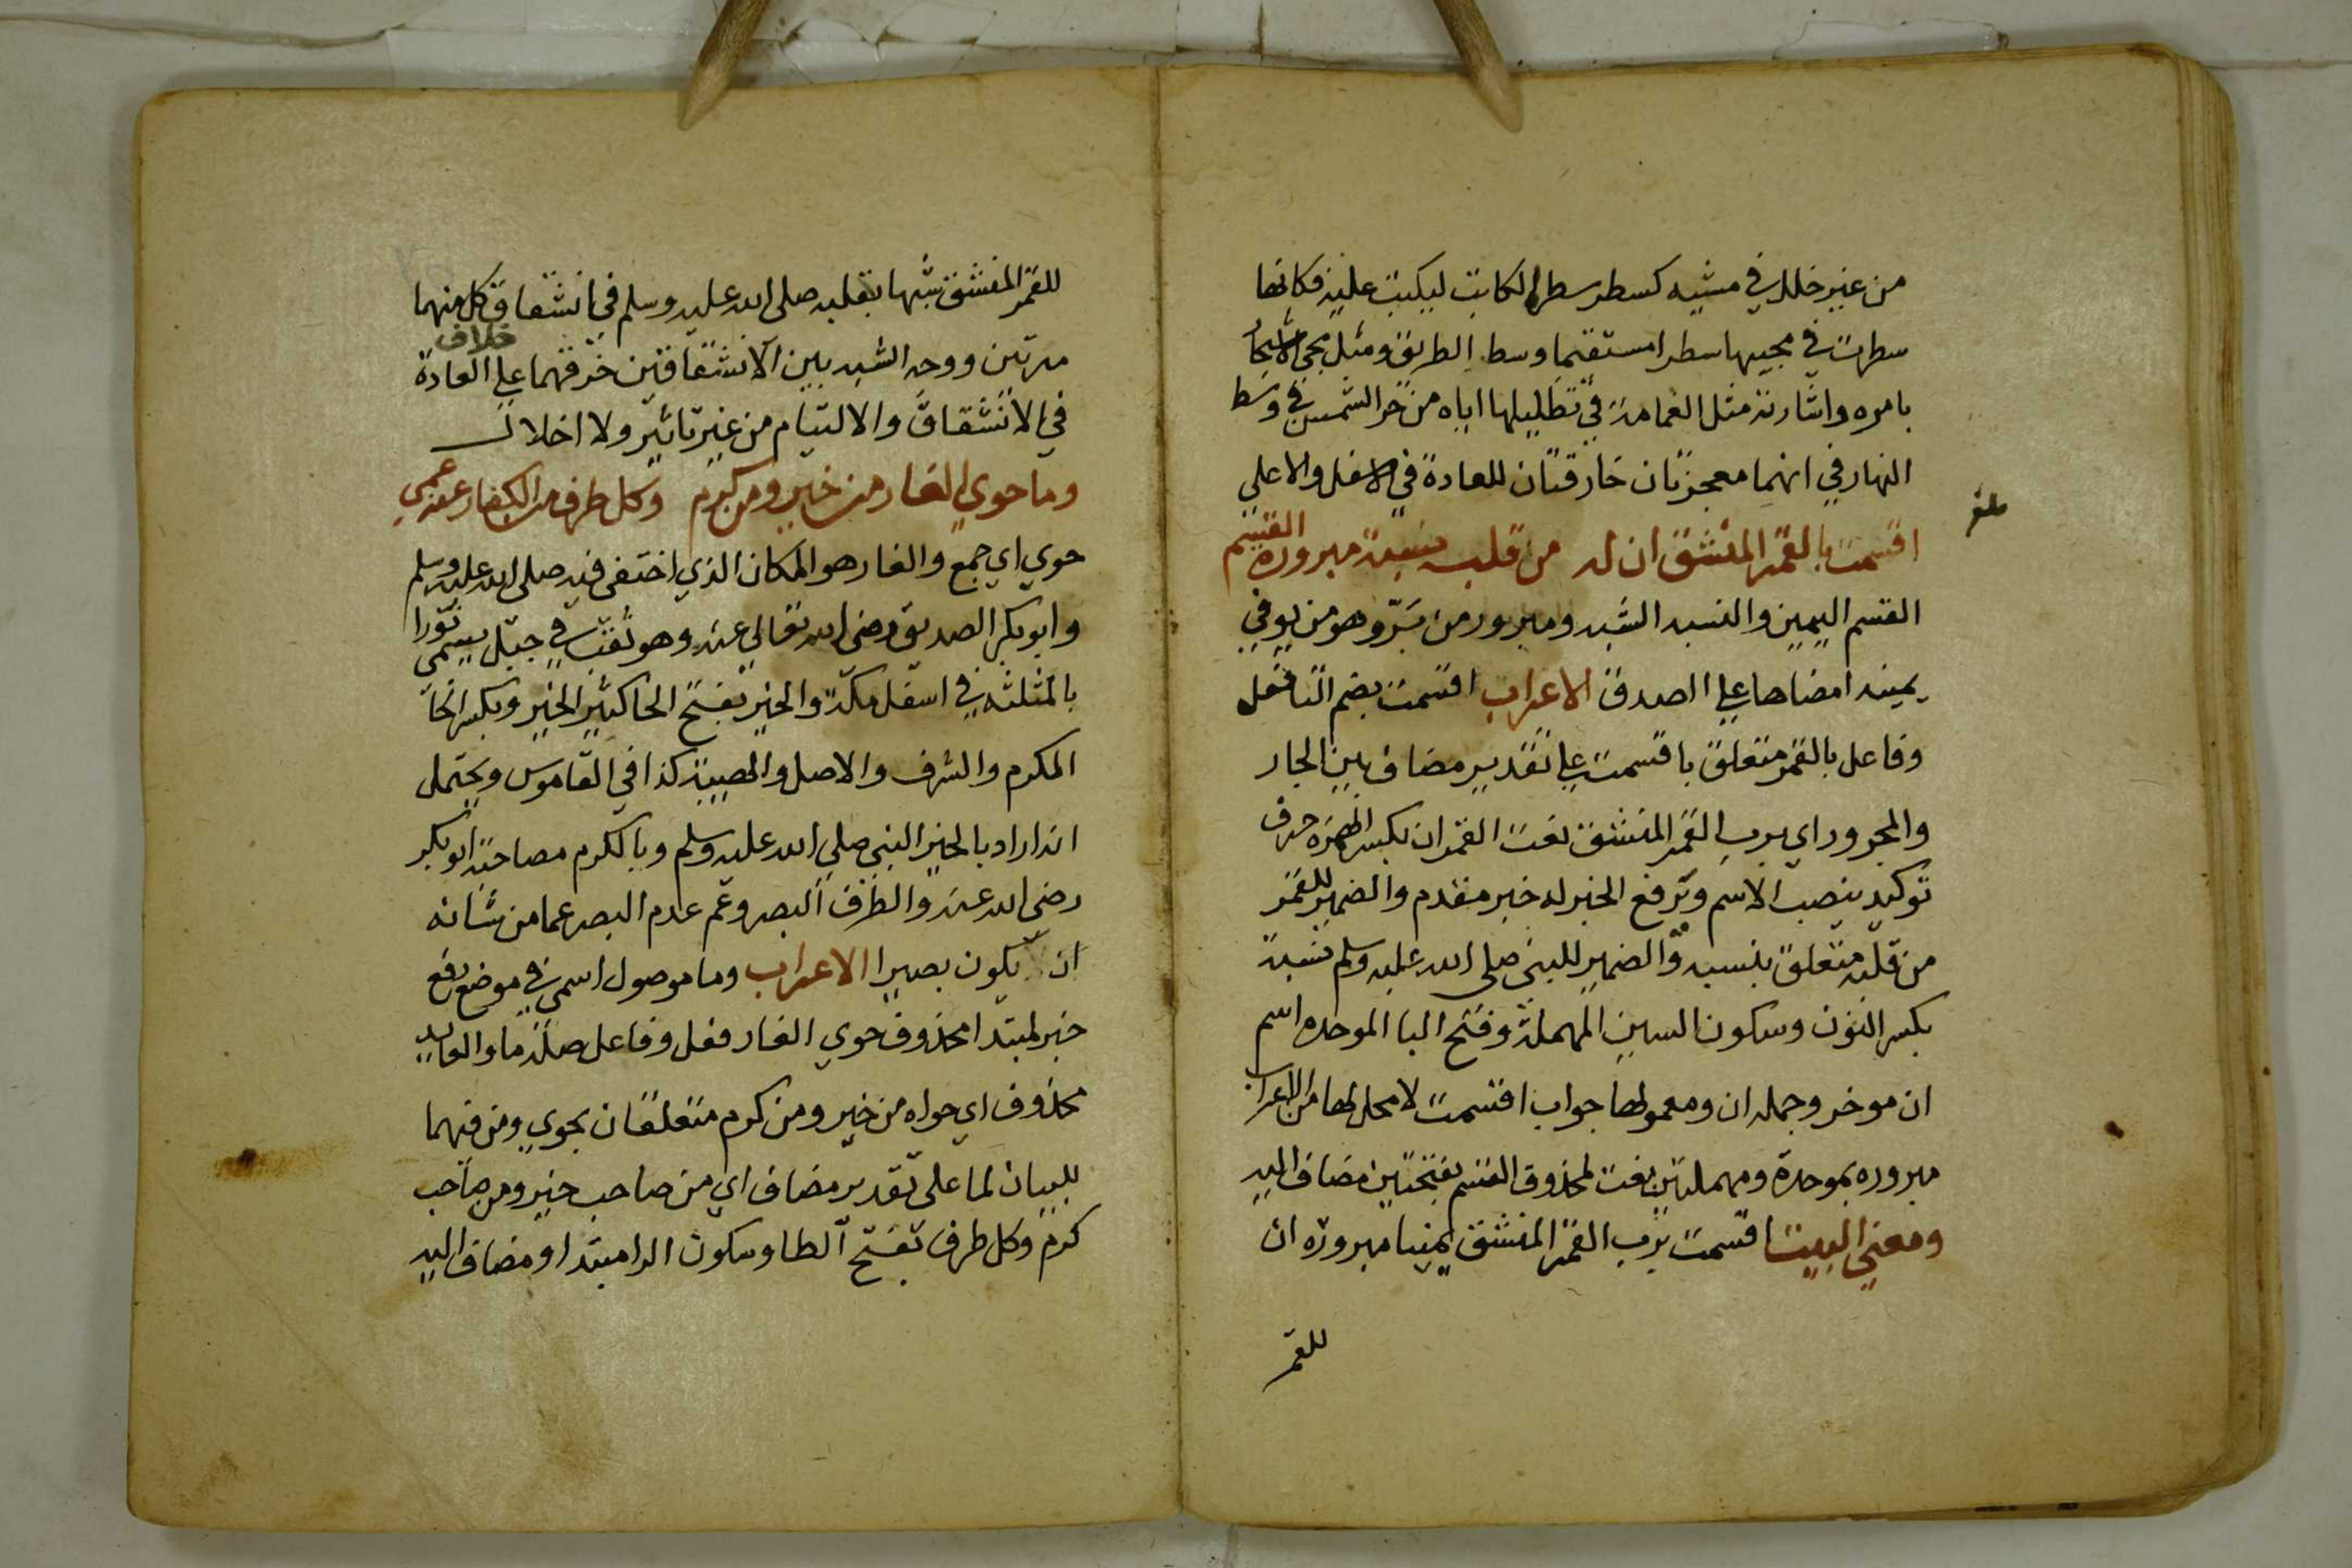 من غير خلل في مشيه كسطر سطر الكاتب ليكتب عليه فكانها
سطرت في مجيها سطرا مستقيما وسط الطريق ومثل مجي الاشجار
بامره واشارته مثل الغمامة في تظليلها اياه من حر الشمس في وسط
النهار في انهما معجزتان خارقتان للعادة في الاسفل والاعلي
اقسمت بالقمر المنشق ان له من قلبه نسبة مبرورة القسم
القسم اليمين والنسبه الشبه ومبرور من بَرّ وهو من يوفي
يمينه امضاها علي الصدق الاعراب اقسمت بضم التا فعل
وفاعل بالقمر متعلق باقسمت علي تقدير مضاف بين الجار
والمجرور اي برب القمر المنشق نعت القمر ان بكسر الهمزه حرف
توكيد ينصب الاسم ويرفع الخبر له خبر مقدم والضمير للقمر
من قلبه متعلق بنسبه والضمير للنبي صلي الله عليه وسلم نسبة
بكسر النون وسكون السين المهملة وفتح البا الموحده اسم
ان موخر وجمله ان ومعمولها جواب اقسمت لا محل لها من الاعراب
مبروره بموحدة ومهملتين نعت لمحذوف القسم بفتحتين مضاف اليه
ومعني البيت اقسمت برب القمر المنشق يمينا مبرورة ان
للقمر
للقمر المنشق شبها بقلبه صلي الله عليه وسلم في انشقاق كل منهما
خلاف
مرتين ووجه الشبه بين الانشقاقين خرقهما علي العادة
في الانشقاق والالتيام من غير تاثير ولا اخلال
وما حوي الغار من خير ومن كرم وكل طرف من الكفار عنه عمي
حوي اي جمع والغار هو المكان الذي اختفي فيه صلي الله عليه وسلم
وابو بكر الصديق رضي الله تعالي عنه وهو ثقب في جبل يسمي ثورا
بالمثلثه في اسفل مكة والخير بفتح الخا كثير الخير وبكسر الخا
المكرم والشرف والاصل والهيية كذا في القاموس ويحتمل
انه اراد بالخير النبي صلي الله عليه وسلم وبالكرم مصاحبه ابو بكر
رضي الله عنه والطرف البصر وعَم عدم البصر عما من شانه
ان يكون بصيرا الاعراب وما موصول اسمي في موضع رفع
خبر لمبتدا محذوف حوي الغار فعل وفاعل صلة ما والعايد
محذوف اي حواه من خير ومن كرم متعلقان بحوي ومن فيهما
للبيان لما علي تقدير مضاف اي من صاحب خير ومن صاحب
كرم وكل طرف بفتح الطا وسكون الرا مبتدا ومضاف اليه